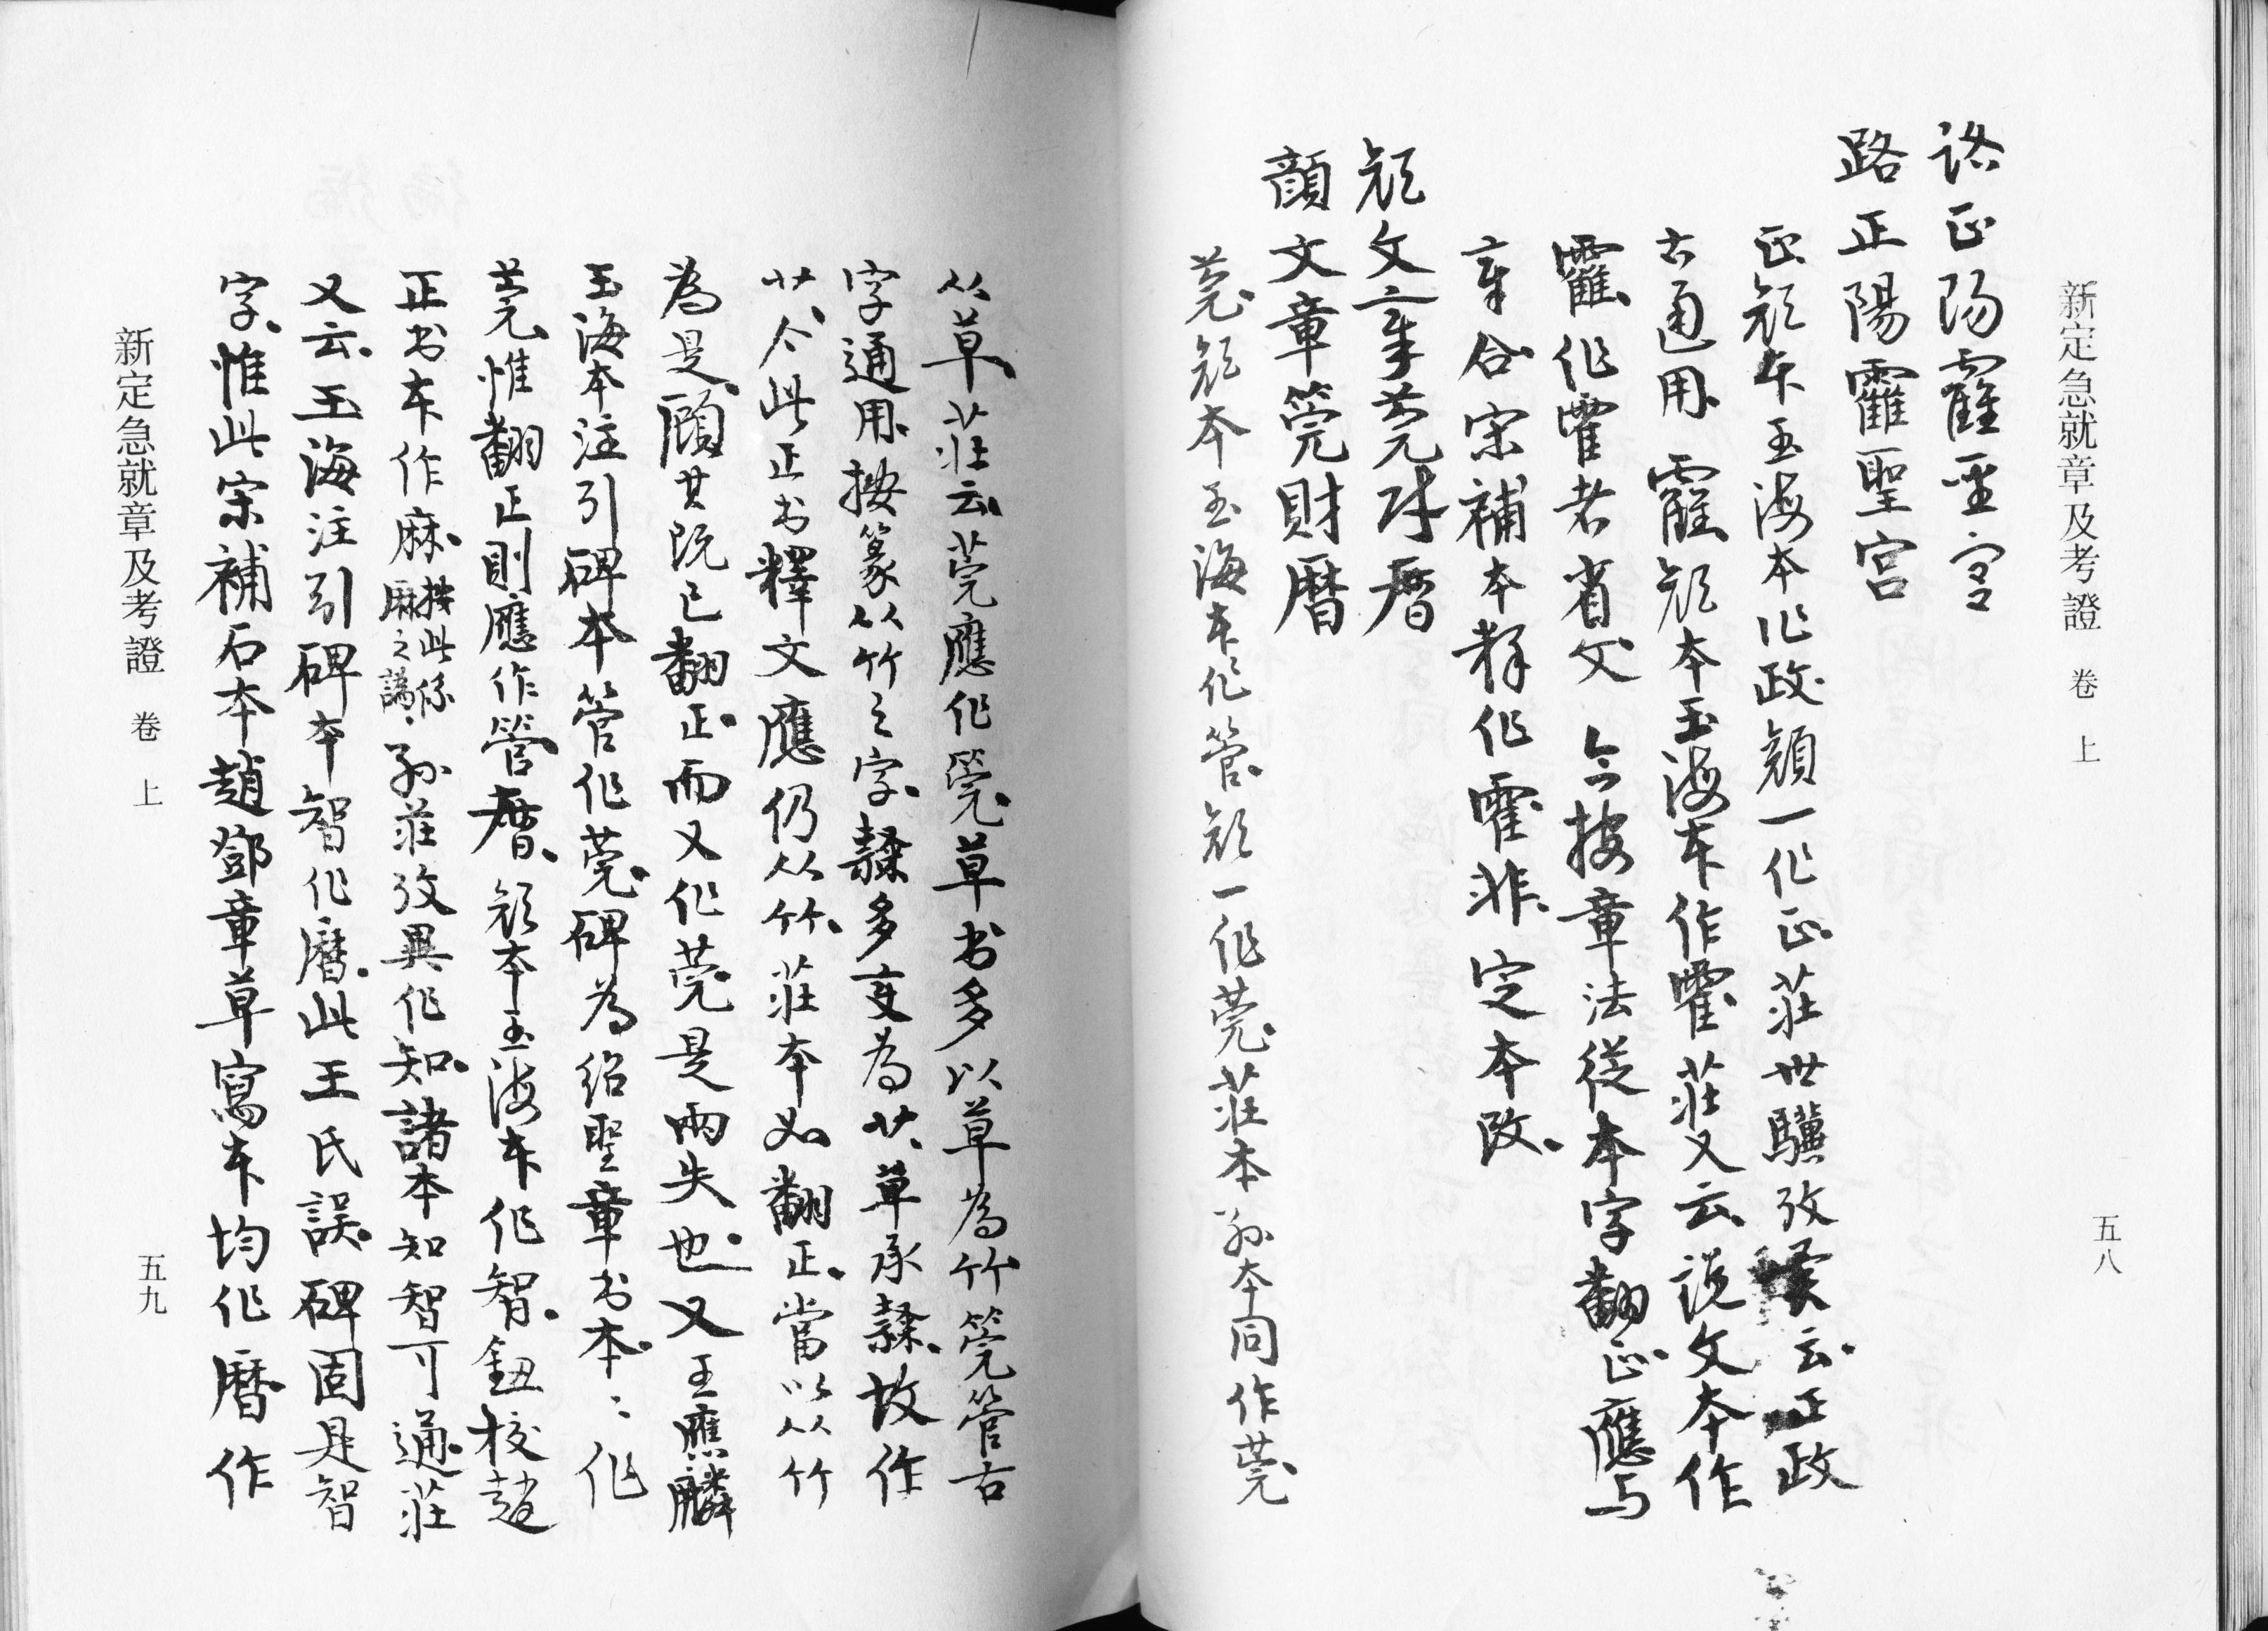 新定急就章及考證 卷上 五八
路正陽霍聖宮
路正陽靃聖宮
正顏本玉海本作政顏一作正莊世驥攷異云正政
古通用靃顏本玉海本作霍莊又云說文本作
靃作霍者省文今按章法從本字翻正應与
章合宋補本釋作霍非定本改
顏文章莞財曆
顏文章筦財曆
莞顏本玉海本作管顏一作莞莊本孫本同作莞
从草莊云莞應作筦草书多以草為竹筦管古
字通用按篆从竹之字隸多变為艹草承隸故作
艹今此正书釋文應仍从竹莊本如翻正當以从竹
為是顧其既已翻正而又作莞是兩失也又王應麟
玉海本注引碑本管作莞碑為紹聖章书本本作
莞惟翻正則應作管曆顏本玉海本作智鈕校趙
正书本作麻按此係麻之譌孫莊攷異作知諸本知智可通莊
又云王海注引碑本智作曆此王氏誤碑固是智
字惟此宋補石本趙鄧章草寫本均作曆作
新定急就章及考證 卷上 五九